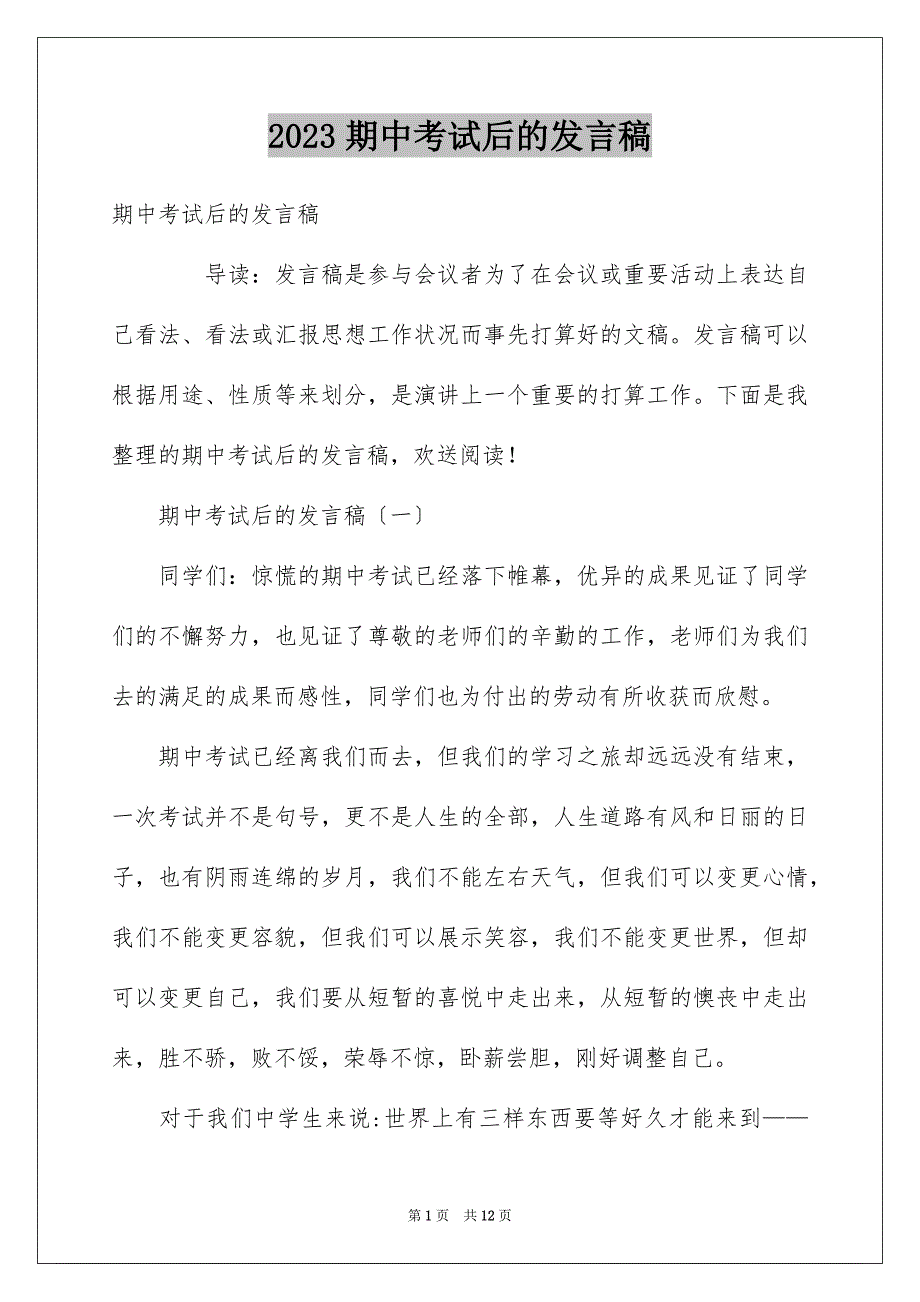 2023期中考试后的发言稿
期中考试后的发言稿
导读：发言稿是参与会议者为了在会议或重要活动上表达自
己看法、看法或汇报思想工作状况而事先打算好的文稿。发言稿可以
根据用途、性质等来划分，是演讲上一个重要的打算工作。下面是我
整理的期中考试后的发言稿，欢送阅读！
期中考试后的发言稿〔一〕
同学们：惊慌的期中考试已经落下帷幕，优异的成果见证了同学
们的不懈努力，也见证了尊敬的老师们的辛勤的工作，老师们为我们
去的满足的成果而感性，同学们也为付出的劳动有所收获而欣慰。
期中考试已经离我们而去，但我们的学习之旅却远远没有结束，
一次考试并不是句号，更不是人生的全部，人生道路有风和日丽的日
子，也有阴雨连绵的岁月，我们不能左右天气，但我们可以变更心情，
我们不能变更容貌，但我们可以展示笑容，我们不能变更世界，但却
可以变更自己，我们要从短暂的喜悦中走出来，从短暂的懊丧中走出
来，胜不骄，败不馁，荣辱不惊，卧薪尝胆，刚好调整自己。
对于我们中学生来说:世界上有三样东西要等好久才能来到——
第 1 页 共 12 页